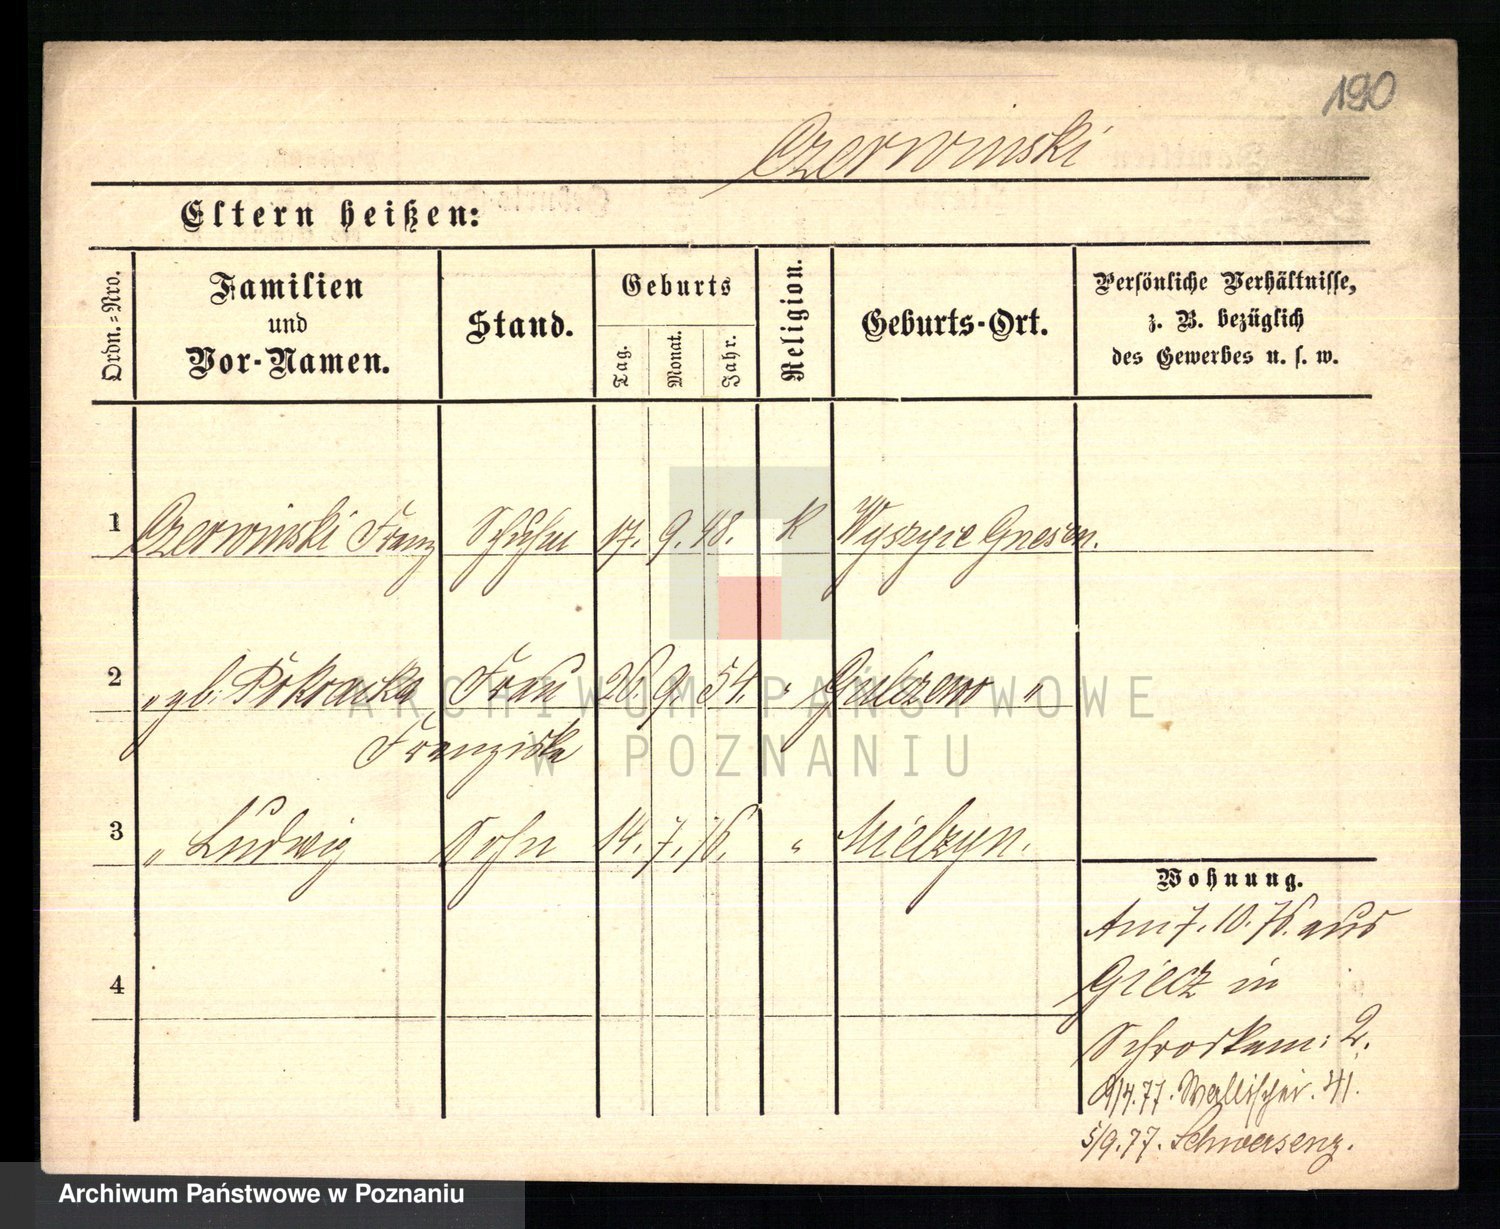 190
Czerwinski
Eltern heißen:
Ordn.-Nro.
Familien
und
Vor-Namen.
Stand.
Geburts
Tag.
Monat.
Jahr.
Religion.
Geburts-Ort.
Persönliche Verhältnisse,
z. B. bezüglich
des Gewerbes u. s. w.
1 Czerwinski Franz 17. 9. 48. K Gnesen.
2 " gb. Frau 26. 9. 54. " "
Franziska
3 " Ludwig Sohn 14. 7. 76. " Mielzyn.
4
Wohnung.
Am 7. 10. 76. aus
Giecz in
2.
77. Wallischei. 41.
5/9. 77. Schwersenz.
ARCHIWUM PAŃSTWOWE
W POZNANIU
Archiwum Państwowe w Poznaniu